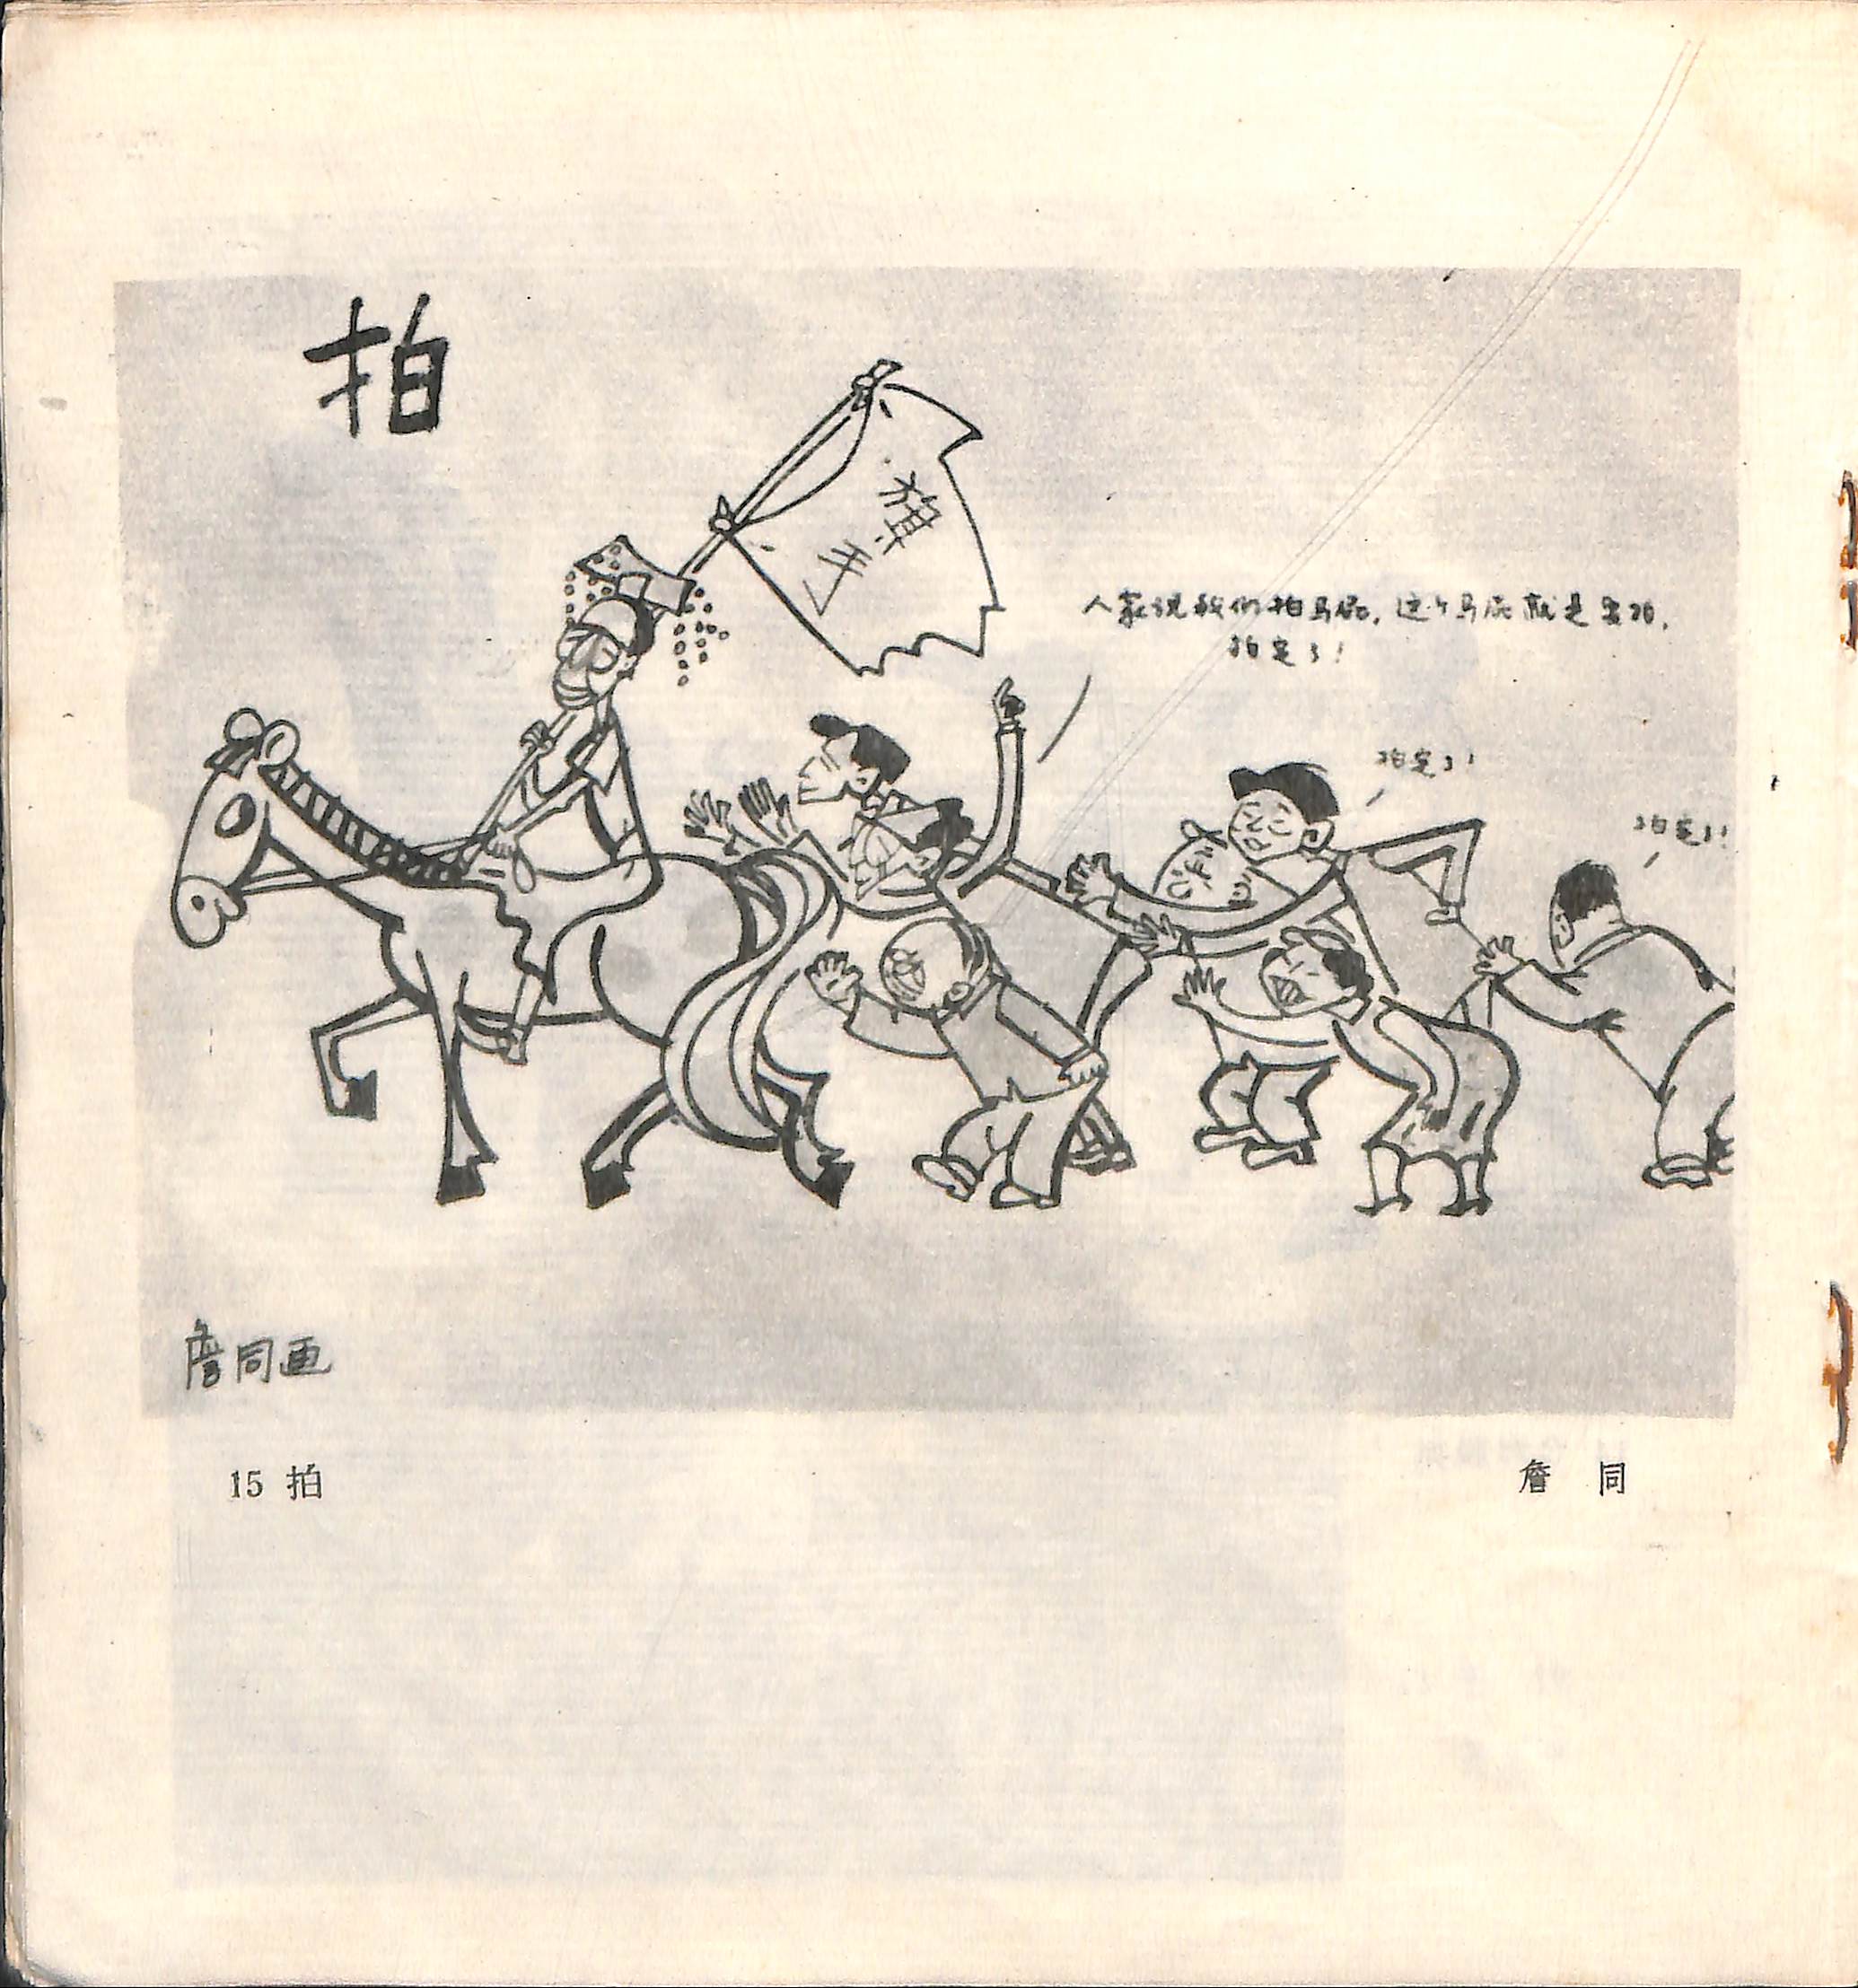 拍
旗
手
人家说我们拍马屁，这个马屁就是要拍，
拍定了！
拍定了！
拍定了！
詹同画
15 拍
詹 同